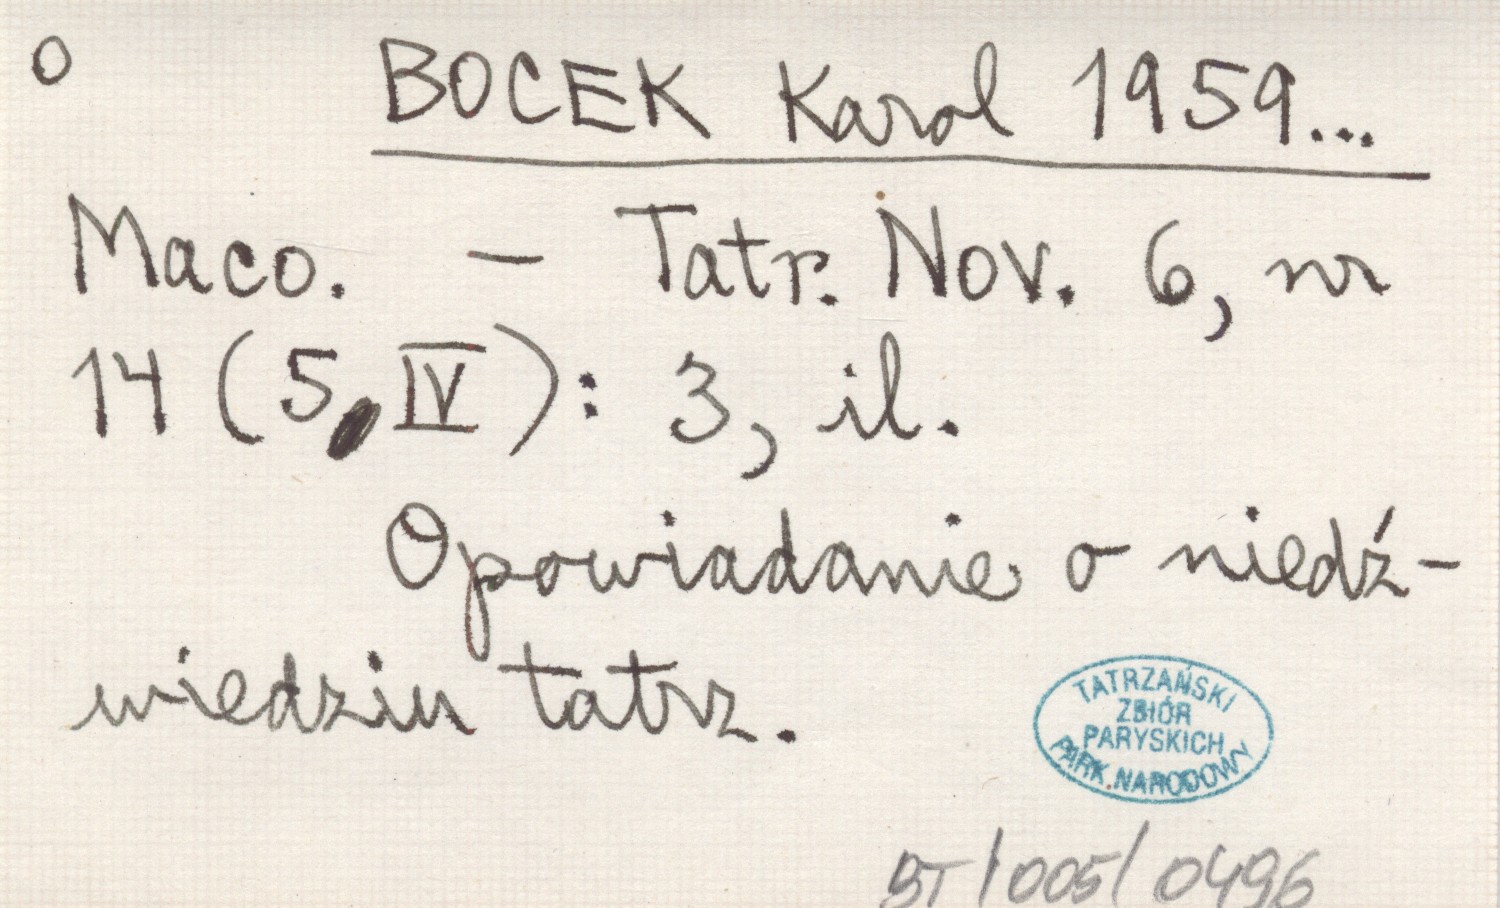 o
BOCEK Karol 1959...
Maco. – Tatr. Nov. 6, nr
14 (5, IV): 3, il.
Opowiadanie o niedź-
wiedziu tatrz.
TATRZAŃSKI
ZBIÓR
PARYSKICH
PARK.NARODOWY
BT/005/0496